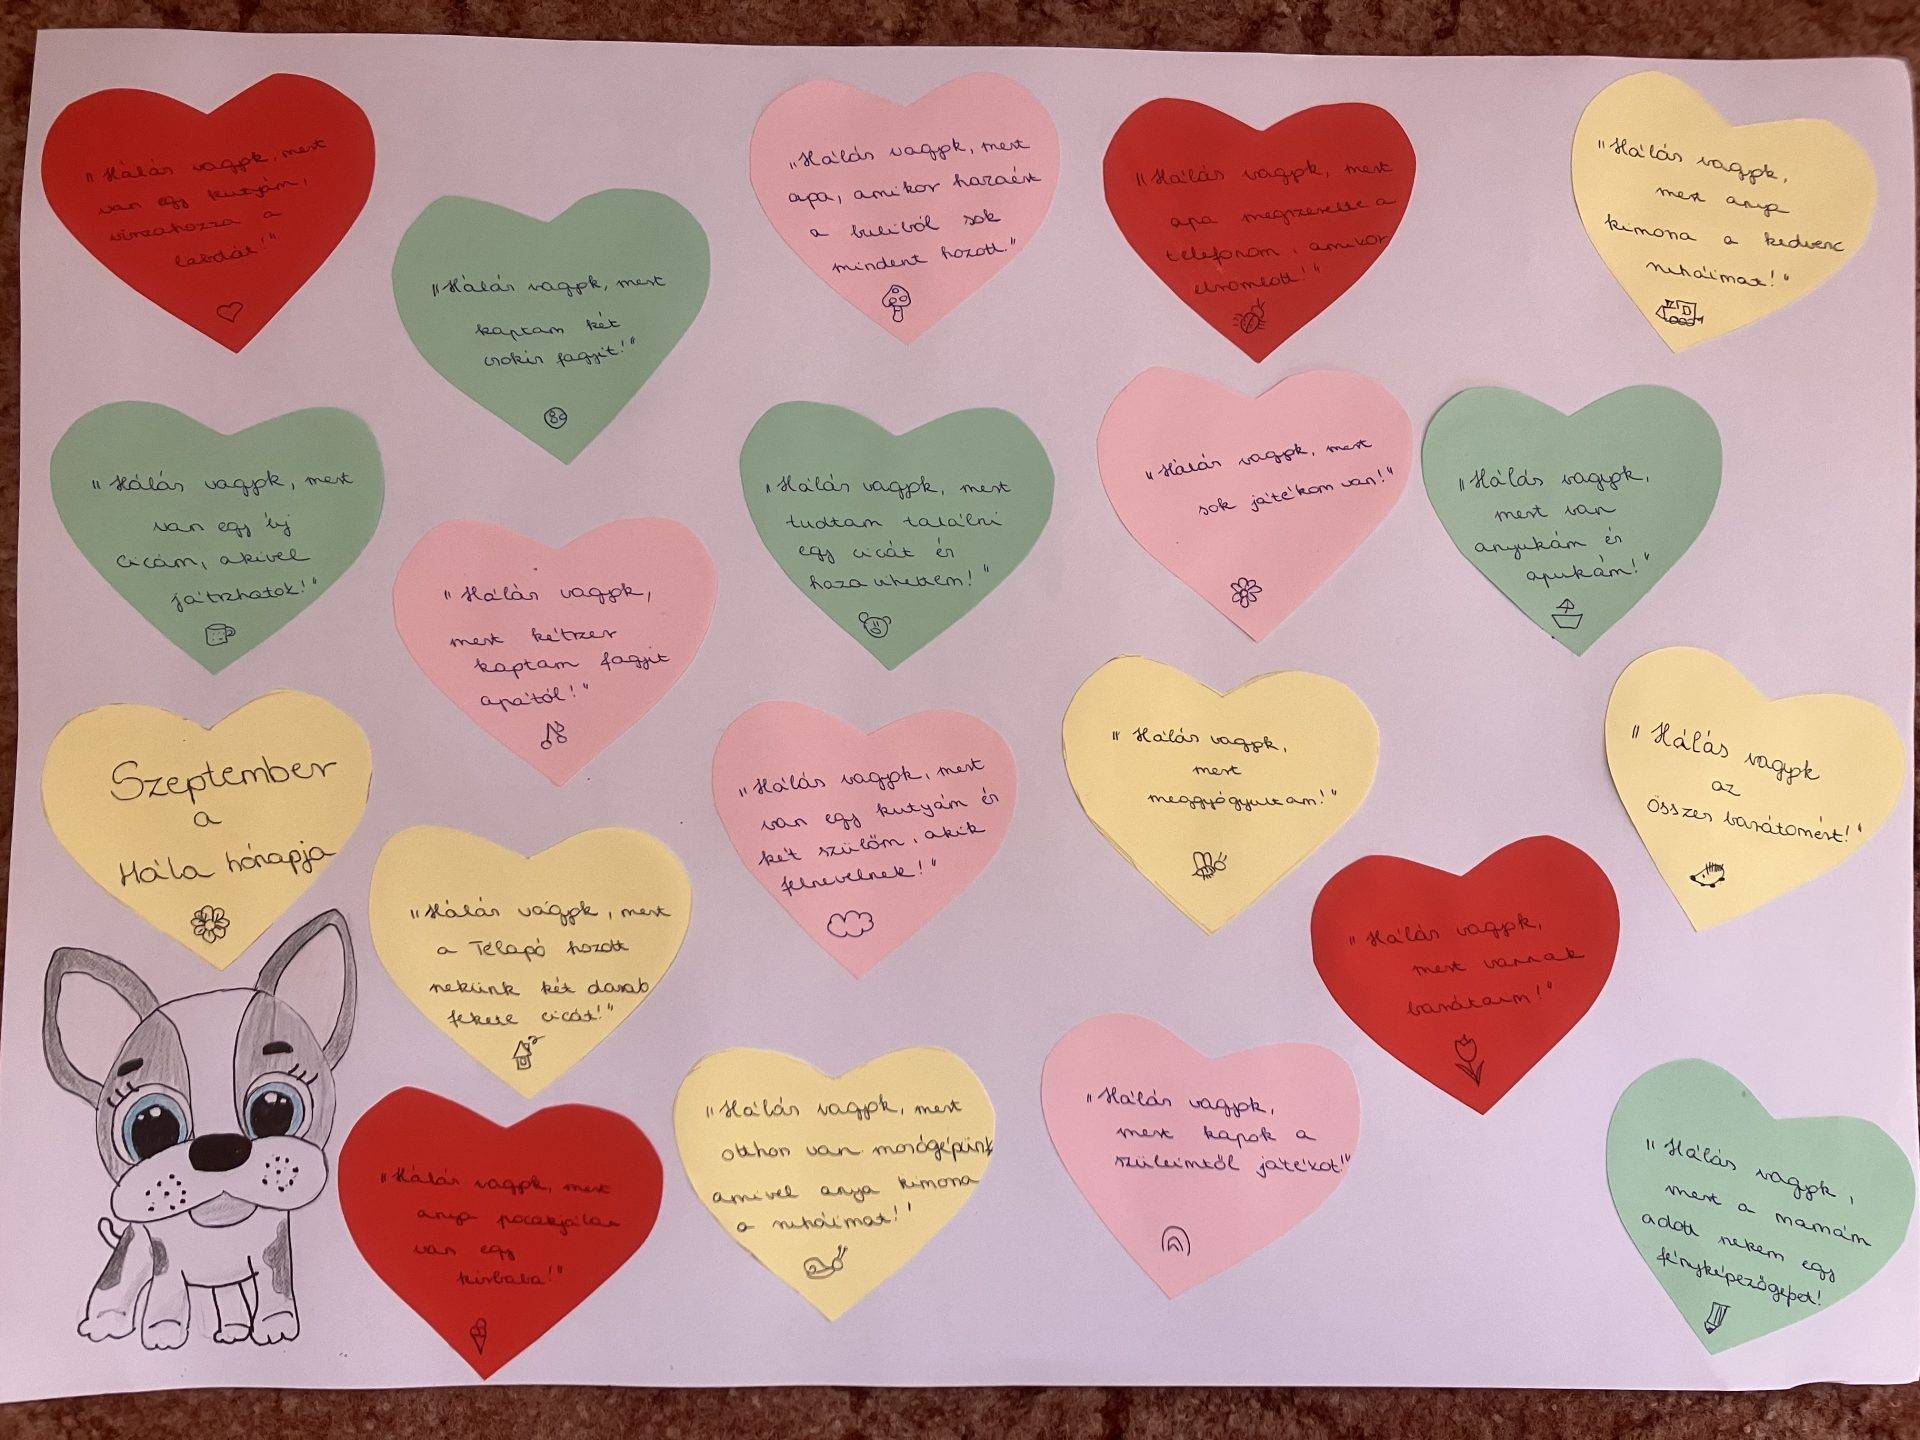 „Hálás vagyok, mert
van egy kutyám,
visszahozza a
labdát!"
„Hálás vagyok, mert
kaptam két
csokis fagyit!"
„Hálás vagyok, mert
apa, amikor hazaért
a buliból sok
mindent hozott."
„Hálás vagyok, mert
apa megszerelte a
telefonom, amikor
elromlott!"
"Hálás vagyok,
mert anya
kimossa a kedvenc
ruháimat!"
„Hálás vagyok, mert
van egy új
cicám, akivel
játszhatok!"
"Hálás vagyok,
mert kétszer
kaptam fagyit
apától!"
„Hálás vagyok, mert
tudtam találni
egy cicát és
haza vihettem!"
„Hálás vagyok, mert
sok játékom van!"
„Hálás vagyok,
mert van
anyukám és
apukám!"
Szeptember
a
Hála hónapja
„Hálás vagyok, mert
a Télapó hozott
nekünk két darab
fekete cicát!"
„Hálás vagyok, mert
van egy kutyám és
két szülőm, akik
felnevelnek!"
"Hálás vagyok,
mert
meggyógyultam!"
"Hálás vagyok
az
összes barátomért!"
„Hálás vagyok,
mert vannak
barátaim!"
„Hálás vagyok, mert
anya pocakjában
van egy
kisbaba!"
„Hálás vagyok, mert
otthon van mosógépünk
amivel anya kimossa
a ruháimat!"
„Hálás vagyok,
mert kapok a
szüleimtől játékot!"
"Hálás vagyok,
mert a mamám
adott nekem egy
fényképezőgépet!